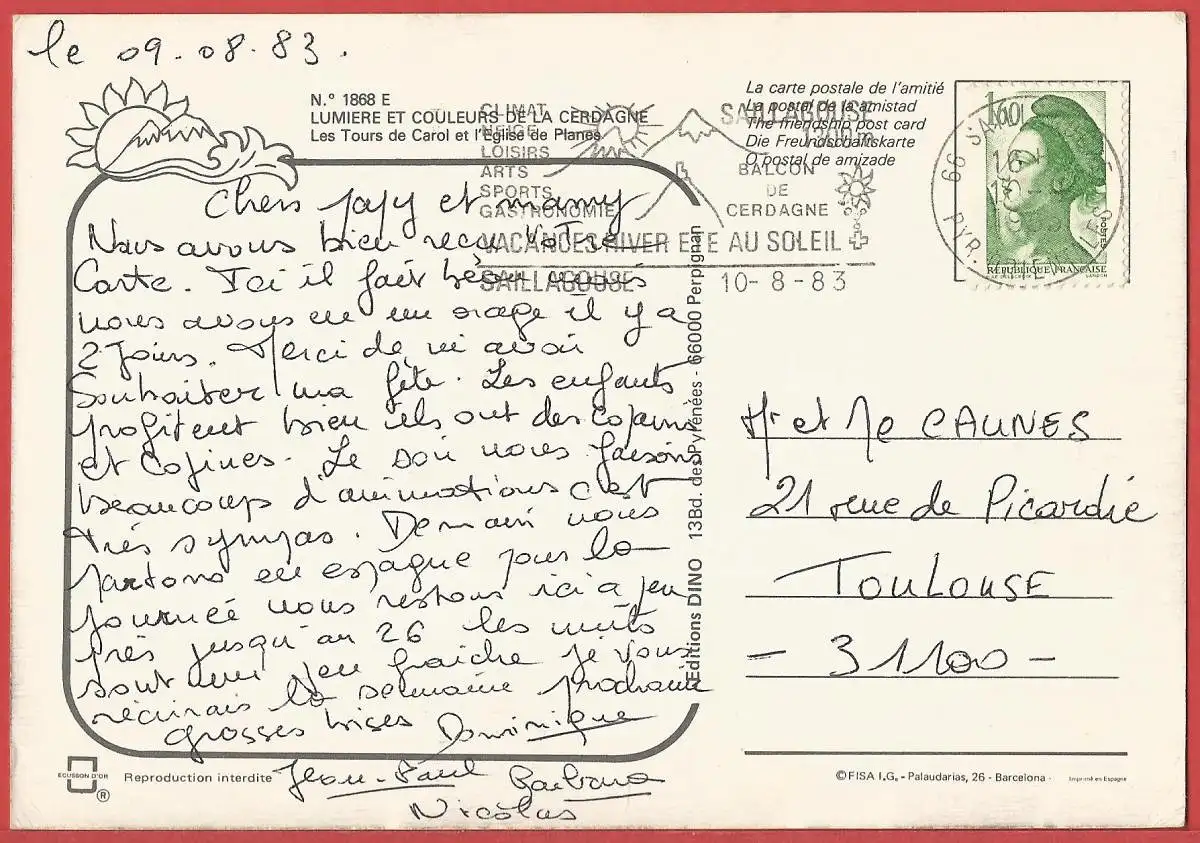 le 09.08.83.
N.° 1868 E
LUMIERE ET COULEURS DE LA CERDAGNE
Les Tours de Carol et l'Eglise de Planes
Chers papy et mamy
Nous avons bien reçu votre
Carte. Ici il fait beau
nous avons eu un orage il y a
2 Jours. Merci de m'avoir
Souhaiter ma fête. Les enfants
profitent bien ils ont des copains
et copines. Le soir nous faisons
beaucoups d'animations c'est
très sympas. Demain nous
partons en espagne pour la
journée nous restons ici a peu
près jusqu'au 26 les nuits
sont un peu fraiche je vous
récirais la semaine prochaine
grosses bises Dominique
Jean-Paul Barbara
Nicolas
CLIMAT
NEIGE
LOISIRS
ARTS
SPORTS
GASTRONOMIE
SAILLAGOUSE
1300m
BALCON
DE
CERDAGNE
VACANCES HIVER ETE AU SOLEIL
SAILLAGOUSE 10-8-83
La carte postale de l'amitié
La postal de la amistad
The friendship post card
Die Freundschaftskarte
O postal de amizade
1,60
POSTES
RÉPUBLIQUE FRANÇAISE
Editions DINO 13Bd. des Pyrénées - 66000 Perpignan
Mr et Me CAUNES
21 rue de Picardie
TOULOUSE
- 31100 -
ECUSSON D'OR
®
Reproduction interdite
© FISA I.G. - Palaudarias, 26 - Barcelona -
Imprimé en Espagne